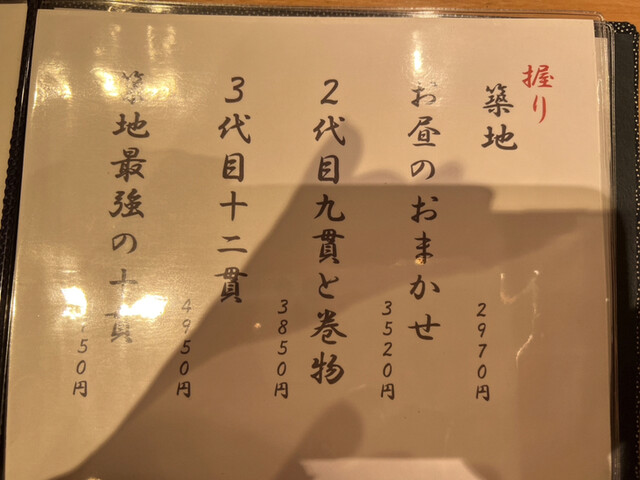 握り
築地
2970円
お昼のおまかせ
3520円
2代目九貫と巻物
3850円
3代目十二貫
4950円
築地最強の十貫
50円